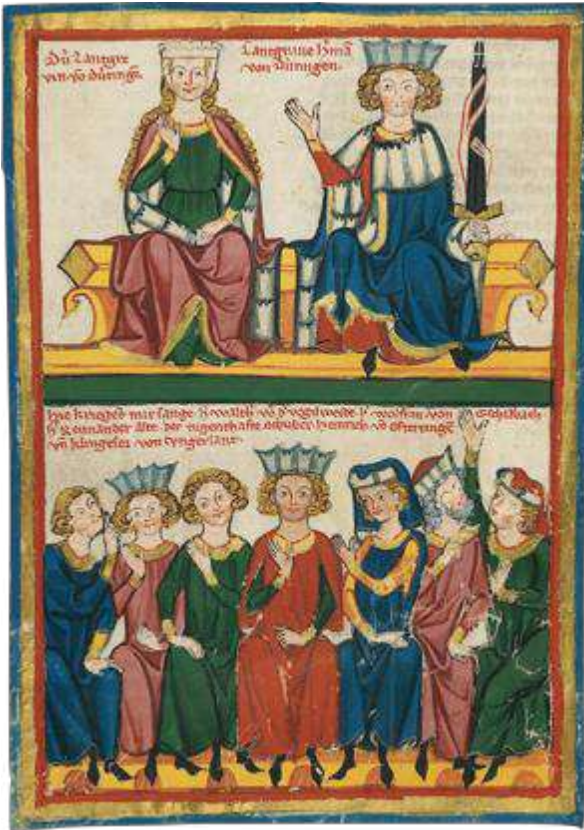 Dü Lantgre
vin vō dūringē.
Lantgraue h̄mā
von Duringen.
Hie krieget mit sange. h̄ walth̄ vō d̄ vogilweide. h̄ wolfran von Eschilbach
h̄ Reinmar d̄ alte. der tugenthafte schriber. heinrich vō ofterdingē
vn̄ klingesor von vngerlant.